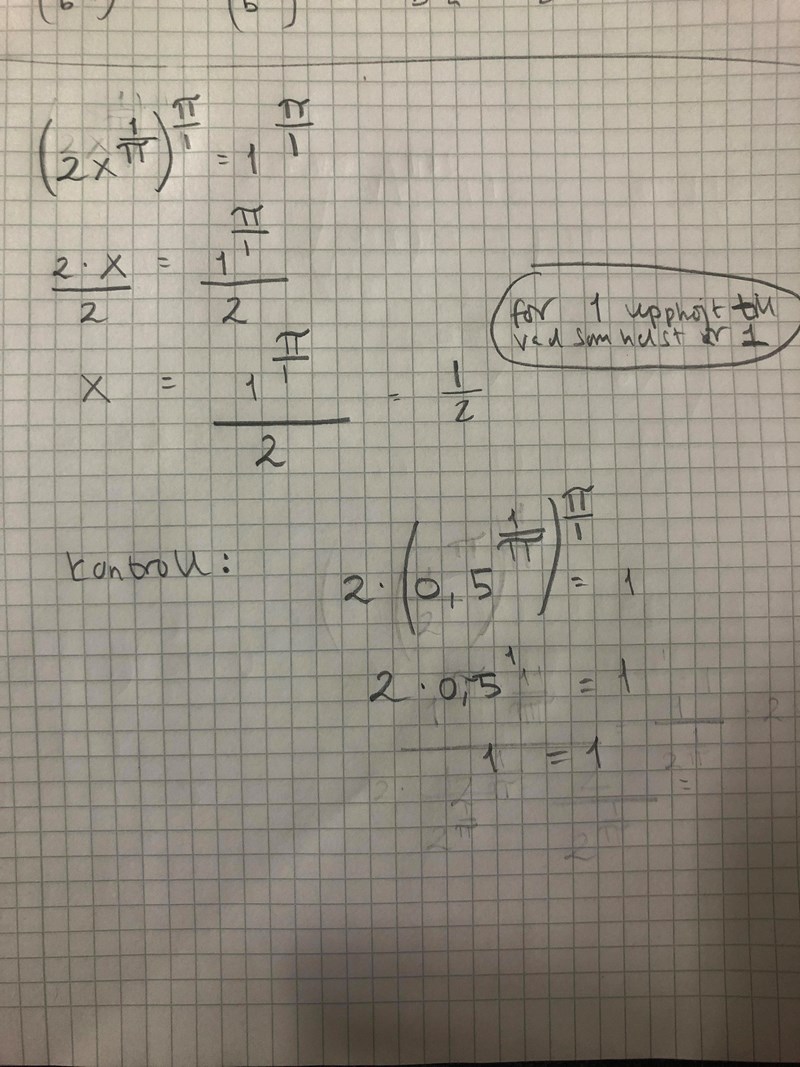 (2x^(1/π))^(π/1) = 1^(π/1)
(2·x)/2 = (1^(π/1))/2
för 1 upphöjt till
vad som helst är 1
x = (1^(π/1))/2 = 1/2
kontroll:
2·(0,5^(1/π))^(π/1) = 1
2·0,5^1 = 1
1 = 1